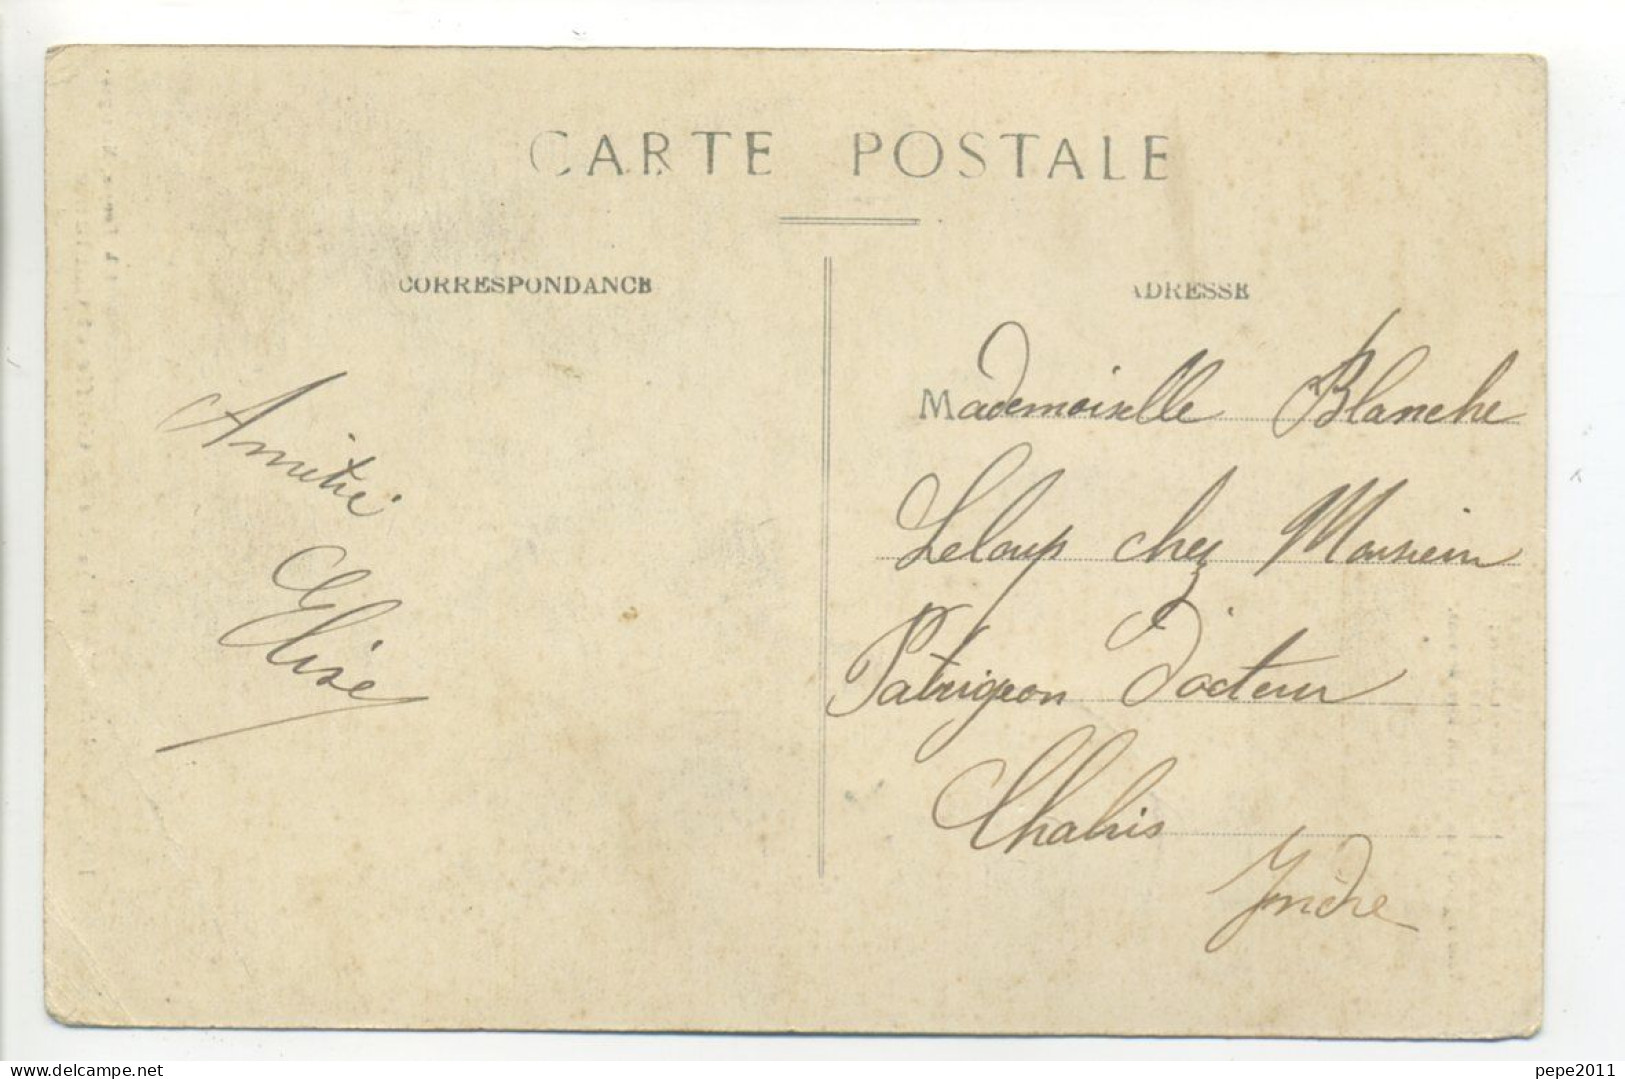 CARTE POSTALE
CORRESPONDANCE
ADRESSE
Amitié
Elise
Mademoiselle Blanche
Leloup chez Monsieur
Patrigeon Docteur
Chabris
Indre
delcampe.net
pepe2011